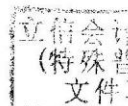 立信会计
(特殊普
文件